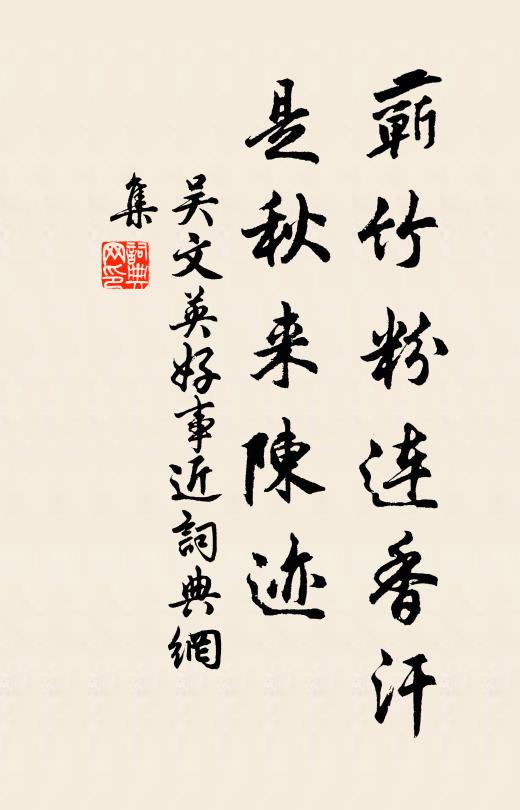 蕲竹粉連香汗
是秋来陳迹
吴文英好事近詞典網
集
詞典網印